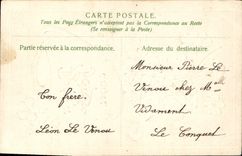 CARTE POSTALE.
Tous les Pays Étrangers n'acceptent pas la Correspondance au Recto
(Se renseigner à la Poste)
Partie réservée à la correspondance.
Adresse du destinataire.
Monsieur Pierre Le
Venou chez Mlle
Vidament
Le Conquet
Ton frère.
Léon Le Venou